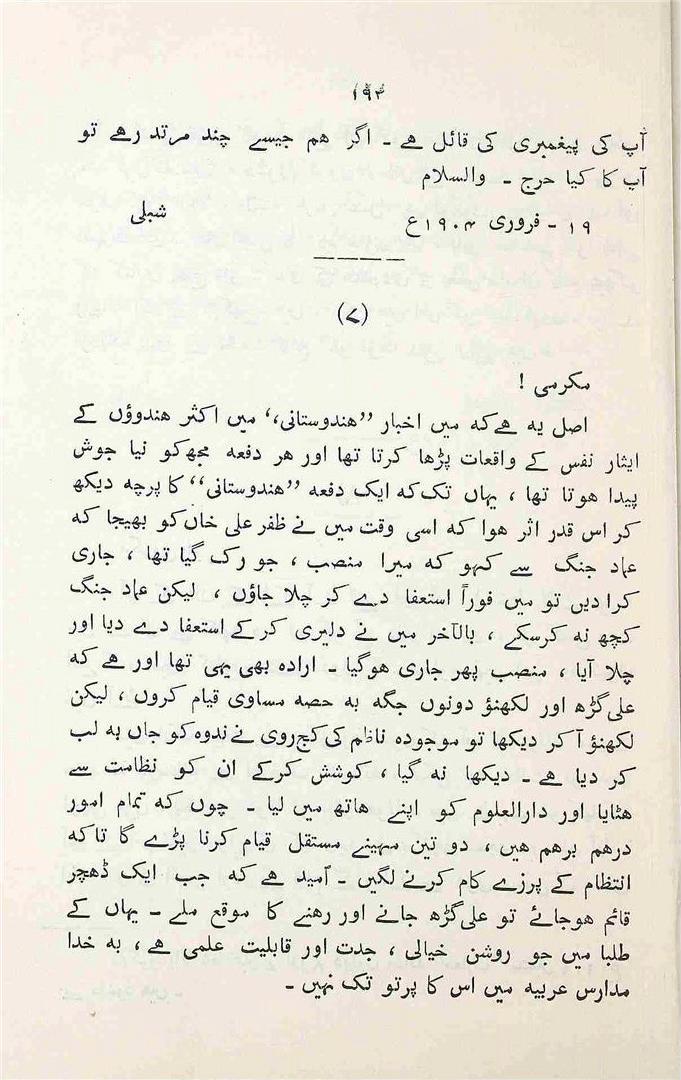 ۱۹۳
آپ کی پیغمبری کی قائل ہے ۔ اگر ہم جیسے چند مرتد رہے تو
آپ کا کیا حرج ۔ والسلام
شبلی
۱۹ - فروری ۱۹۰۴ع
(۷)
مکرمی !
اصل یہ ہے کہ میں اخبار ’’ہندوستانی‘‘ میں اکثر ہندوؤں کے
ایثار نفس کے واقعات پڑھا کرتا تھا اور ہر دفعہ مجھ کو نیا جوش
پیدا ہوتا تھا ، یہاں تک کہ ایک دفعہ ’’ہندوستانی‘‘ کا پرچہ دیکھ
کر اس قدر اثر ہوا کہ اسی وقت میں نے ظفر علی خاں کو بھیجا کہ
عماد جنگ سے کہو کہ میرا منصب ، جو رک گیا تھا ، جاری
کرا دیں تو میں فوراً استعفا دے کر چلا جاؤں ، لیکن عماد جنگ
کچھ نہ کرسکے ، بالآخر میں نے دلیری کر کے استعفا دے دیا اور
چلا آیا ، منصب پھر جاری ہوگیا ۔ ارادہ بھی یہی تھا اور ہے کہ
علی گڑھ اور لکھنؤ دونوں جگہ بہ حصہ مساوی قیام کروں ، لیکن
لکھنؤ آ کر دیکھا تو موجودہ ناظم کی کج روی نے ندوہ کو جاں بہ لب
کر دیا ہے ۔ دیکھا نہ گیا ، کوشش کرکے ان کو نظامت سے
ہٹایا اور دارالعلوم کو اپنے ہاتھ میں لیا ۔ چوں کہ تمام امور
درہم برہم ہیں ، دو تین مہینے مستقل قیام کرنا پڑے گا تاکہ
انتظام کے پرزے کام کرنے لگیں ۔ اُمید ہے کہ جب ایک ڈھچر
قائم ہوجائے تو علی گڑھ جانے اور رہنے کا موقع ملے ۔ یہاں کے
طلبا میں جو روشن خیالی ، جدت اور قابلیت علمی ہے ، بہ خدا
مدارس عربیہ میں اس کا پرتو تک نہیں ۔